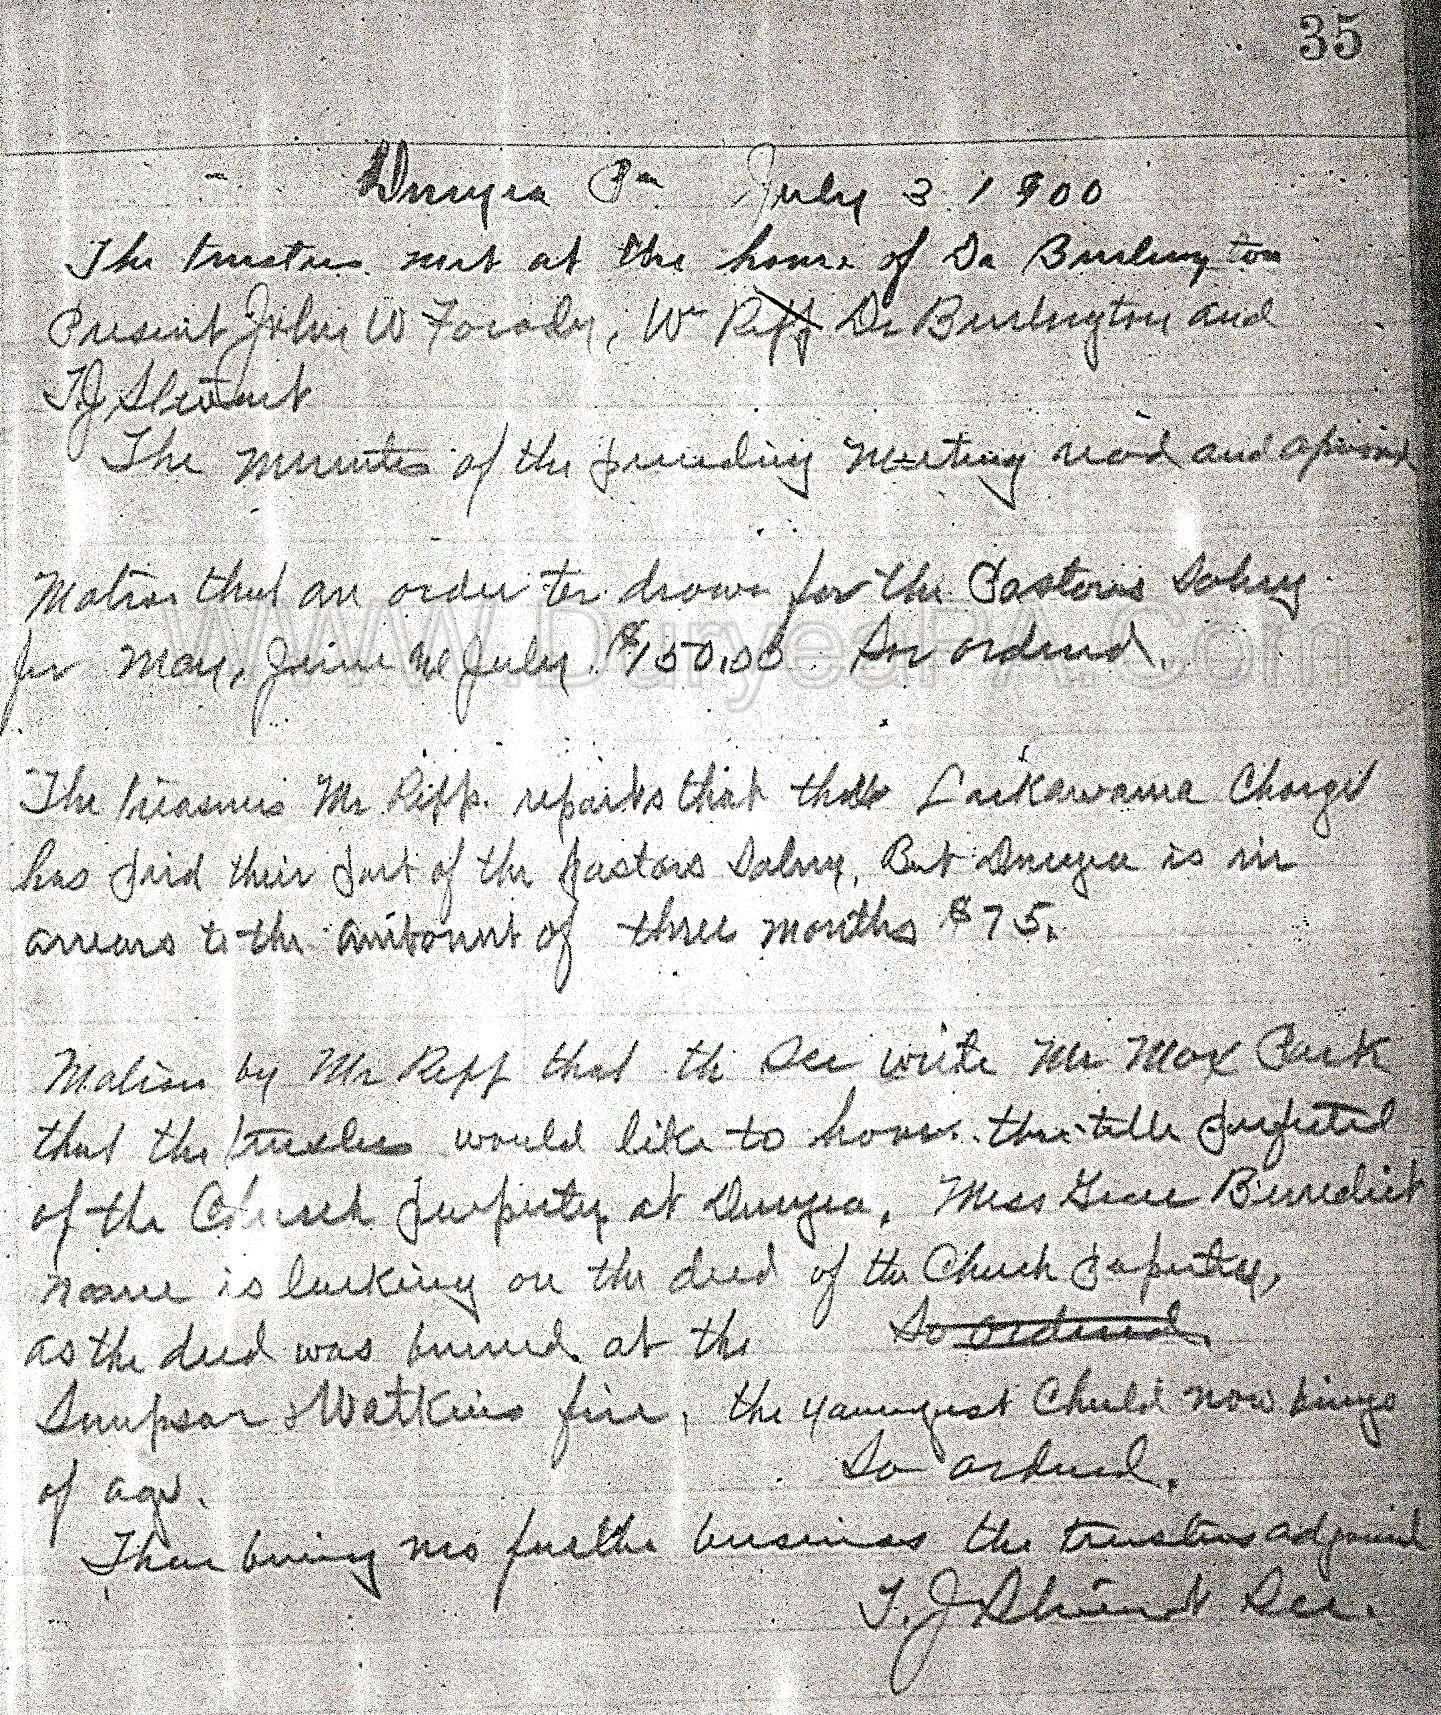 35
Duryea Pa July 3 1900
The trustees met at the home of Dr Burlington
Present John W Forody, Wm Repp Dr Burlington and
T.J. Stewart
The Minutes of the preceding Meeting read and aproved
Motion that an order be drawn for the Pastors Salary
for May, June and July $150.00 So ordered.
The treasurers Mr Repp. reports that the Lackawanna Charge
has paid their part of the pastors Salary, But Duryea is in
arrears to the amount of three months $75.
Motion by Mr Repp that the Sec write Mr Max Park
that the trustees would like to have the title perfected
of the Church property at Duryea, Miss Grace Benedict
name is lacking on the deed of the Church property,
as the deed was burned at the So ordered.
Simpson & Watkins fire, the youngest Child now being
of age. So ordered.
There being no further business the trustees adjourned
T. J. Stewart Sec.
www.DuryeaPA.Com